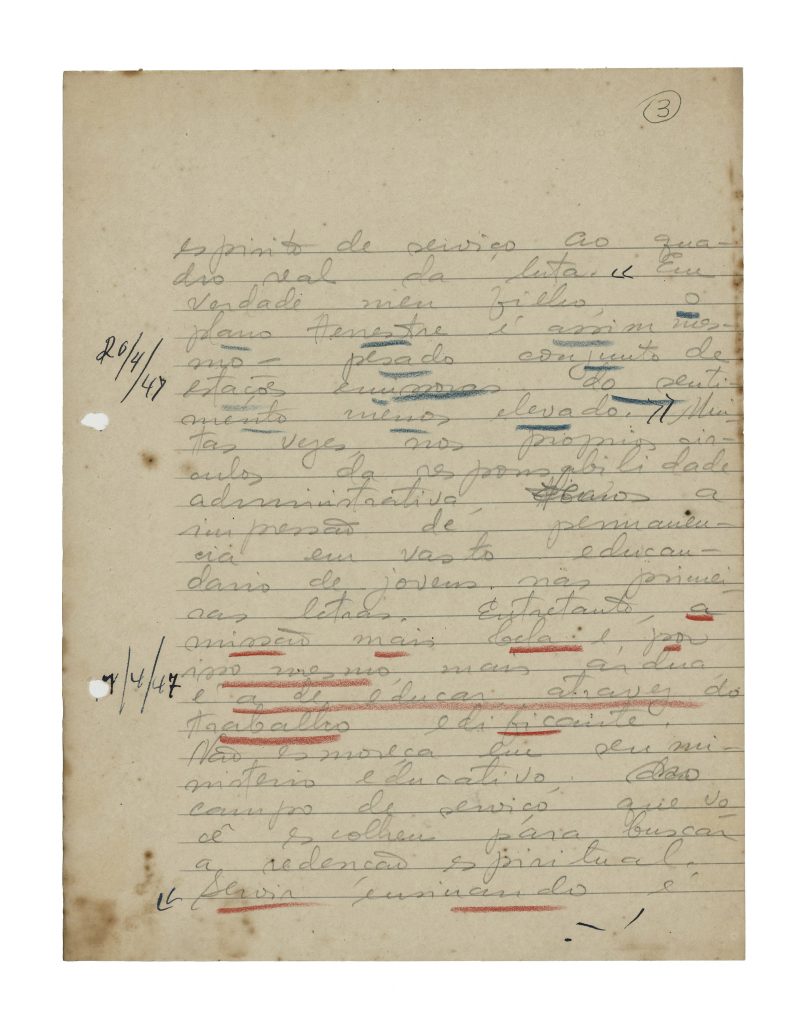 3
espirito de seiviço ao qua-
dro real da luta. « Em
verdade meu filho, o
plano terrestre é assim mes-
20/4/47
mo - pesado conjunto de
estações do senti-
mento menos elevado. » Mui
tas vezes, nos proprios cir-
culos da responsabilidade
administrativa, temos a
impressão de permanen-
cia em vasto educan-
dario de jovens nas primei
ras letras. Entretanto, a
missão mais bela e, por
7/4/47
isso mesmo, mais ardua,
é a de educar, atravez do
trabalho edificante.
Não esmoreça em seu mi-
nisterio educativo.
campo de serviço, que vo
cê escolheu para buscar
a redenção espiritual.
« Servir ensinando é